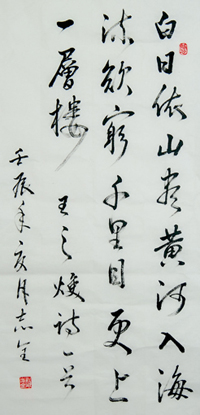 白日依山尽黄河入海
流欲窮千里目更上
一層楼 王之焕詩一首
壬辰年亥月志全